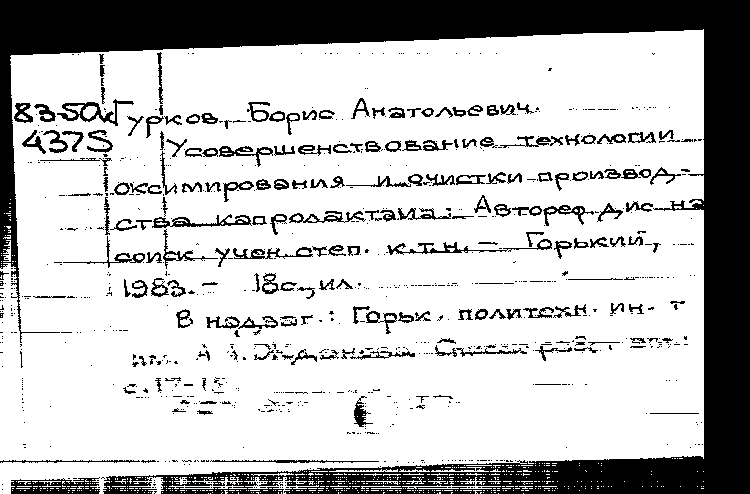 83-50к Гурков, Борис Анатольевич.
4375 Усовершенствование технологии
оксимирования и очистки производ-
ства капролактама: Автореф. дис на
соиск. учен. степ. к.т.н. - Горький,
1983. - 18с., ил.
В надзаг.: Горьк. политехн. ин-т
им. А. А. Жданова. Список раб. авт.:
с. 17-18